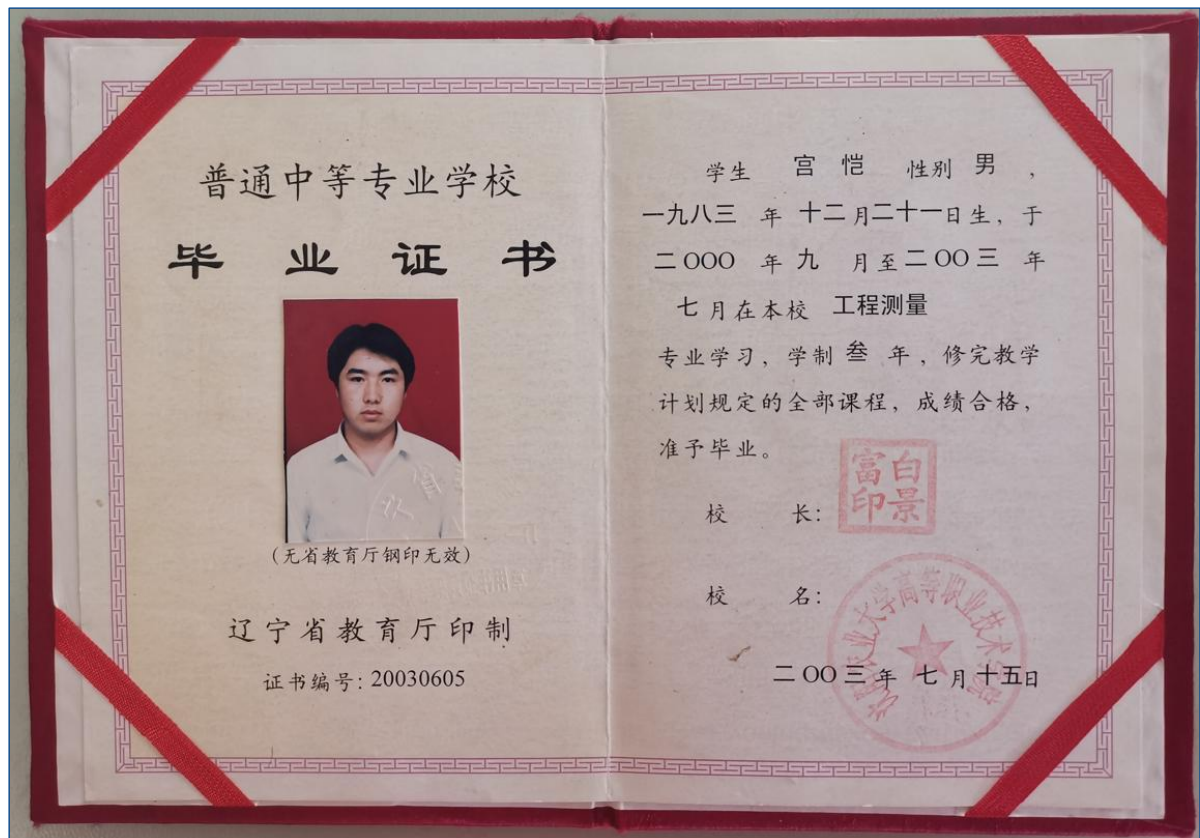 普通中等专业学校
毕业证书
(无省教育厅钢印无效)
辽宁省教育厅印制
证书编号: 20030605
学生 宫恺 性别 男 ,
一九八三 年 十二月二十一日生, 于
二OOO 年 九 月至二OO三 年
七月在本校 工程测量
专业学习, 学制 叁 年, 修完教学
计划规定的全部课程, 成绩合格,
准予毕业。
校 长:
白景富印
校 名:
沈阳农业大学高等职业技术学院
二OO三年 七月十五日